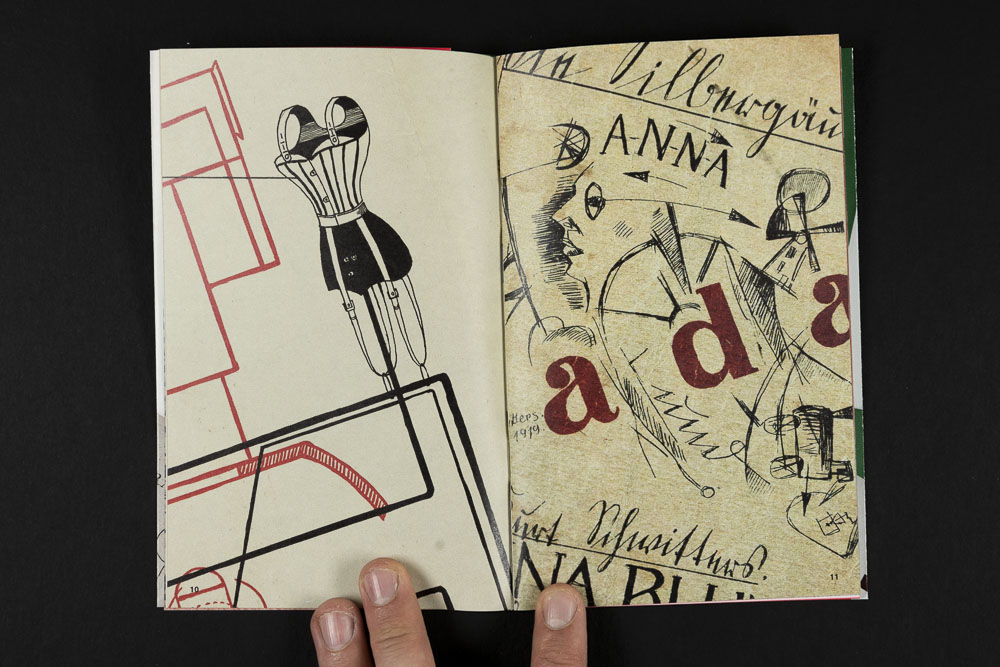 10
Silbergäu
D A-N-N-A
a d a
1919.
Schwitters.
NA BLU
11